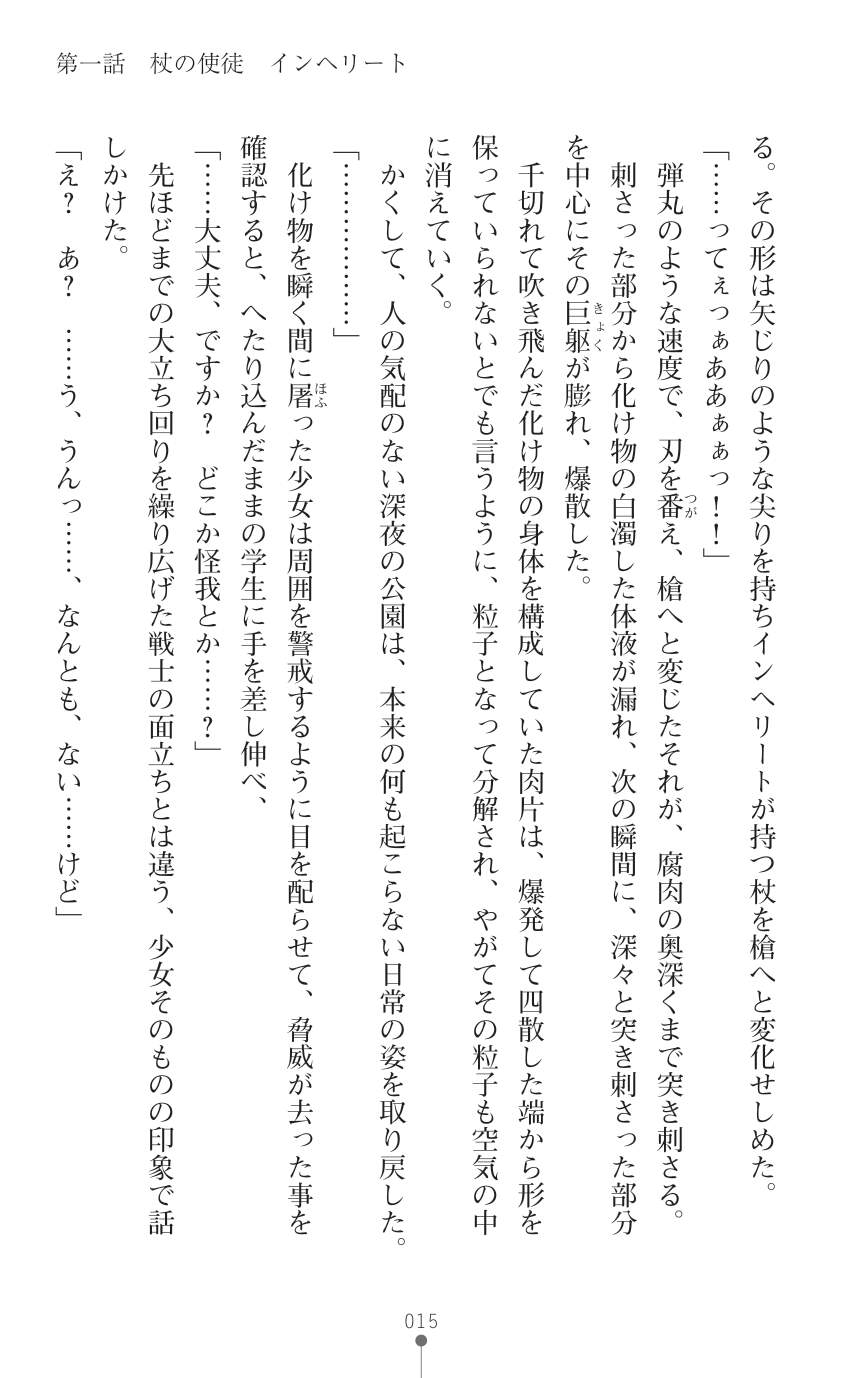 第一話　杖の使徒　インヘリート
る。その形は矢じりのような尖りを持ちインヘリートが持つ杖を槍へと変化せしめた。
「……ってぇっぁああぁぁっ！！」
弾丸のような速度で、刃を番え、槍へと変じたそれが、腐肉の奥深くまで突き刺さる。
つが
刺さった部分から化け物の白濁した体液が漏れ、次の瞬間に、深々と突き刺さった部分
を中心にその巨躯が膨れ、爆散した。
きょく
千切れて吹き飛んだ化け物の身体を構成していた肉片は、爆発して四散した端から形を
保っていられないとでも言うように、粒子となって分解され、やがてその粒子も空気の中
に消えていく。
かくして、人の気配のない深夜の公園は、本来の何も起こらない日常の姿を取り戻した。
「………………」
化け物を瞬く間に屠った少女は周囲を警戒するように目を配らせて、脅威が去った事を
ほふ
確認すると、へたり込んだままの学生に手を差し伸べ、
「……大丈夫、ですか？　どこか怪我とか……？」
先ほどまでの大立ち回りを繰り広げた戦士の面立ちとは違う、少女そのものの印象で話
しかけた。
「え？　あ？　……う、うんっ……、なんとも、ない……けど」
015